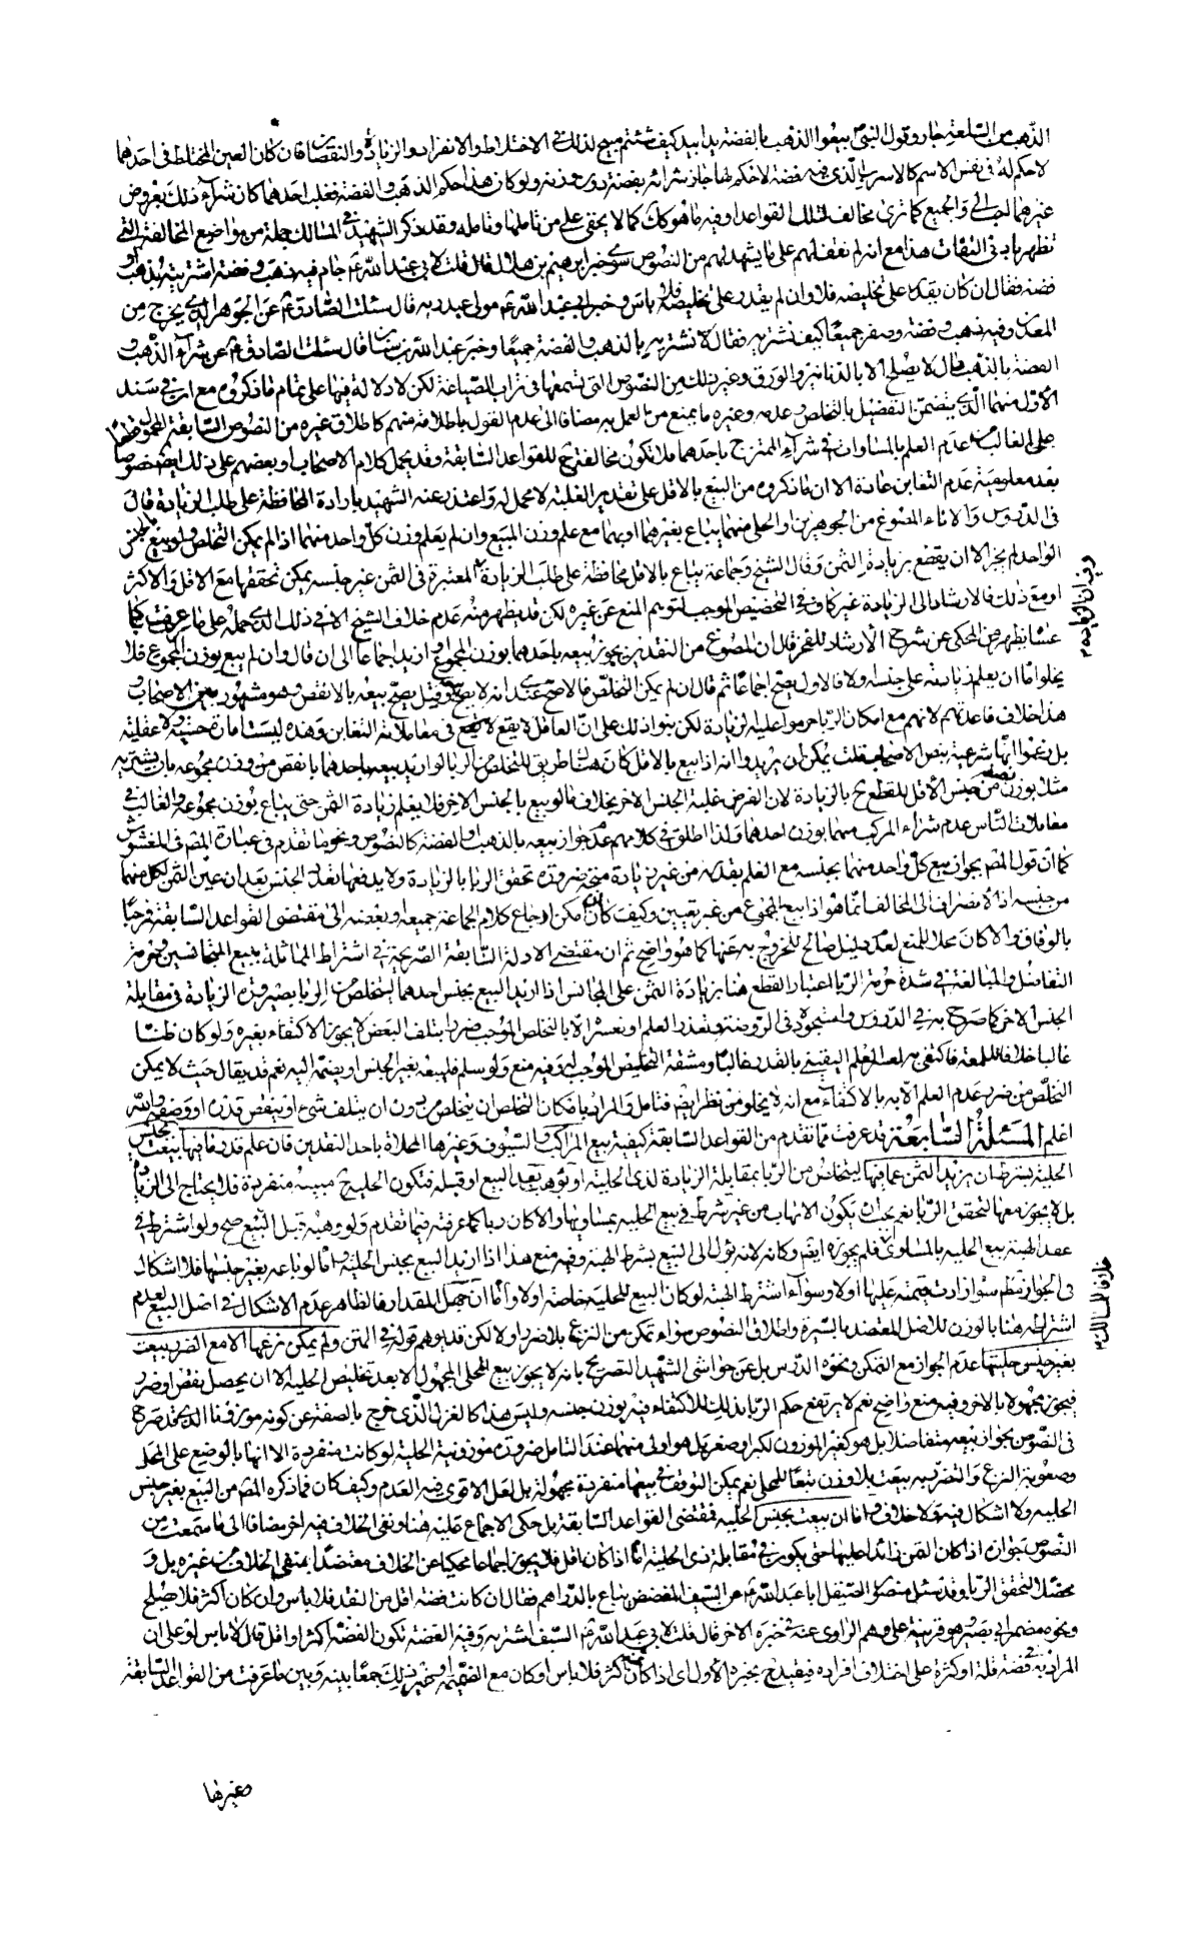 الذهب من السلعة جاز وقول النبي ص بيعوا الذهب بالفضة يدا بيد كيف شئتم مبيح لذلك في الاختلاط والانفراد والزيادة والنقصان فان كان العين المختلط في احدهما
لا حكم له في نفس الاسم كالاسرب الذي فيه فضة لا حكم لها جاز شرائه بفضة دى حذنة ولو كان هذا حكم الذهب والفضة فغلب احدهما كان شراء ذلك بعروض
غيرهما احب الي والجميع كما ترى مخالف لتلك القواعد او فيه ما هو كك كما لا يخفى على من تاملها وتامله وقد ذكر الشهيد في المسالك جملة من مواضع المخالفة التي
تظهر بادنى التفات هذا مع انه لم نعثر لهم على ما يشهد لهم من النصوص سوى خبر ابرهيم بن هلال قال قلت لابي عبد الله ع جام فيه ذهب وفضة اشتريه بذهب او
فضة فقال ان كان يقدر على تخليصه فلا وان لم يقدر على تخليصه فلا باس وخبر ابي عبد الله مولى عبد ربه قال سئلت الصادق ع عن الجوهر الذي يخرج من
المعدن وفيه ذهب وفضة وصفر جميعا كيف نشتريه فقال لا نشتريه بالذهب والفضة جميعا وخبر عبد الله بن سنان قال سئلت الصادق ع عن شراء الذهب و
الفضة بالذهب قال لا يصلح الا بالدنانير والورق وغير ذلك من النصوص التي تسمعها في تراب الصياغة لكن لا دلالة فيها على تمام ما ذكروه مع ان في سند
الأول منهما الذي يتضمن التفصيل بالتخلص وعدمه وغيره ما يمنع من العمل به مضافا الى عدم القول باطلاقه منهم كاطلاق غيره من النصوص السابقة المحمول
على الغالب من عدم العلم بالمساواة في شراء الممتزج باحدهما فلا تكون مخالفة ح للقواعد السابقة وقد يحمل كلام الاصحاب او بعضهم على ذلك ايضا خصوصا
بعد معلومية عدم التغابن عادة الا ان ما ذكروه من البيع بالاقل على تقدير الغلبة لا محمل له واعتذر عنه الشهيد بارادة المحافظة على طلب الزيادة قال
في الدروس والاناء المصوغ من الجوهرين او الحلي منهما يباع بغيرهما او بهما مع علم وزن المبيع وان لم يعلم وزن كل واحد منهما اذا لم يمكن التخلص ولو بيع بالجنس
الواحد لم يجز الا ان يقطع بزيادة الثمن وقال الشيخ وجماعة يباع بالاقل محافظة على طلب الزيادة المعتبرة في الثمن غير جنسه يمكن تحققها مع الاقل والاكثر
او مع ذلك فالارشاد الى الزيادة غير كاف في التخصيص الموجب لتوهم المنع عن غيره لكن قد يظهر منه عدم خلاف الشيخ الا في ذلك الذي حمله على ما عرفت كما
عساه يظهر من المحكى عن شرح الارشاد للفخر قال ان المصوغ من النقدين يجوز بيعه باحدهما بوزن المجموع او ازيد اجماعا الى ان قال وان لم يبع بوزن المجموع فلا
يخلو اما ان يعلم زيادته على جنسه او لا فالاول يصح اجماعا ثم قال ان لم يمكن التخلص فالاصح عندي انه لا يصح بيعه وقيل يصح بيعه بالانقص وهو مشهور بين الاصحاب و
هذا خلاف قاعدتهم لانهم مع امكان الربا حرموا عليه الزيادة لكن بنوا ذلك على ان العاقل لا يقع في معاملاته التغابن وهذه ليست امارة حسية ولا عقلية
بل زعموا انها شرعية بنص الاصحاب قلت يمكن ان يريدوا انه اذا بيع بالاقل كان هناك طريق للتخلص من الربا لو اريد بيعه باحدهما بانقص من وزن مجموعه بان يشتريه
مثلا بوزن نصفه من جنس الاقل للقطع ح بالزيادة لان الفرض غلبة الجنس الاخر بخلاف ما لو بيع بالجنس الاخر فلا يعلم زيادة الثمن حتى يباع بوزن مجموعه والغالب في
معاملات الناس عدم شراء المركب منهما بوزن احدهما ولذا اطلق في كلامهم عدم جواز بيعه بالذهب او الفضة كالنصوص ونحو ما تقدم في عبارة المص في المغشوش
كما ان قول المص بجواز بيع كل واحد منهما بجنسه مع العلم بقدره من غير زيادة متجه ضرورة تحقق الربا بالزيادة ولا يدفعها تعدد الجنس بعد ان عين الثمن لكل منهما
من جنسه اذ الانصراف الى المخالف انما هو اذا بيع المجموع من غير تعيين وكيف كان فان امكن ارجاع كلام الجماعة جميعه او بعضه الى مقتضى القواعد السابقة فمرحبا
بالوفاق والا كان محلا للمنع لعدم دليل صالح للخروج به عنها كما هو واضح ثم ان مقتضى الادلة السابقة الصريحة في اشتراط المماثلة ببيع المتجانسين وحرمة
التفاضل والمبالغة في شدة حرمة الربا اعتبار القطع هنا بزيادة الثمن على المجانس اذا اريد البيع بجنس احدهما ليتخلص من الربا بصيرورة الزيادة في مقابلة
الجنس الاخر كما صرح به في الدروس واستجوده في الروضة فتعذر العلم او تعسره الا بالتخلص الموجب ضررا بتلف البعض لا يجوز الاكتفاء بغيره ولو كان ظنا
غالبا خلافا للمعة فاكتفى به لعسر العلم اليقيني بالقدر غالبا ومشقة التخليص الموجب له وفيه منع ولو سلم فليبعه بغير الجنس او يضمه اليه نعم قد يقال حيث لا يمكن
التخلص من ضرر عدم العلم الا به بالاكتفاء مع انه لا يخلو من نظر ايضا فتامل والمراد بامكان التخلص ان يتخلص من دون ان يتلف شيء او ينقص قدره او وصفه والله
اعلم المسئلة السابعة قد عرفت مما تقدم من القواعد السابقة كيفية بيع المراكب والسيوف وغيرها المحلاة باحد النقدين فان علم قدر ما فيها بيعت بجنس
الحلية بشرط ان يزيد الثمن عما فيها ليتخلص من الربا بمقابلة الزيادة لذي الحلية او توهب بعد البيع او قبله فتكون الحلية ح مبيعة منفردة فلا يحتاج الى الزيادة
بل لا يجوز معها لتحقق الربا نعم يجب ان يكون الاتهاب من غير شرط في بيع الحلية بمساويها والا كان ربا كما عرفته فيما تقدم ولو وهبه قبل البيع صح ولو اشترط في
عقد الهبة بيع الحلية بالمساوى فلم يجوزه ايضا وكانه لانه يؤل الى البيع بشرط الهبة وفيه منع هذا اذا اريد البيع بجنس الحلية واما لو باعه بغير جنسها فلا اشكال
في الجواز مطلقا سواء زادت قيمته عليها او لا وسواء اشترط الهبة لو كان البيع للحلية خاصة او لا واما ان جهل المقدار فالظاهر عدم الاشكال في اصل البيع لعدم
اشتراطه هنا بالوزن للاصل المعتضد بالسيرة واطلاق النصوص سواء تمكن من النزع بلا ضرر او لا لكن قد يوهم قوله في المتن ولم يمكن نزعها الا مع الضرر بيعت
بغير جنس حليتها عدم الجواز مع التمكن ونحوه الدرس بل عن حواشي الشهيد التصريح بانه لا يجوز بيع المحلى المجهول الا بعد تخليص الحلية الا ان يحصل نقص او ضرر
فيجوز مجهولا بالاخر وفيه منع واضح نعم لا يرتفع حكم الربا بذلك للاكتفاء فيه بوزن جنسه وليس هذا كالغزل الذي خرج بالصفة عن كونه موزونا الذي قد صرح
في النصوص بجواز بيعه متفاضلا بل هو كغير الموزون لكبر او صغر بل هو اولى منهما عند التامل ضرورة موزونية الحلية لو كانت منفردة الا انها بالوضع على المحل
وصعوبة النزع والتضرر به بيعت بلا وزن تبعا للمحلى نعم يمكن التوقف في بيعها منفردة مجهولة بل لعل الاقوى فيه العدم وكيف كان فما ذكره المص من البيع بغير جنس
الحلية ولا اشكال فيه ولا خلاف واما ان بيعت بجنس الحلية فمقتضى القواعد السابقة بل حكى الاجماع عليه هنا ونفى الخلاف فيه اخر مضافا الى ما سمعت من
النصوص بجوازه اذا كان الثمن زائدا عليها حتى يكون في مقابلة ذى الحلية اما اذا كان اقل فلا يجوز اجماعا محكيا عن الخلاف معتضدا بنفي الخلاف من غيره بل و
محصلا لتحقق الربا وقد سئل منصور الصيقل ابا عبد الله ع عن السيف المفضض يباع بالدراهم فقال ان كانت فضة اقل من النقد فلا باس وان كان اكثر فلا يصلح
ونحوه مضمر ابي بصير وهو قرينة على وهم الراوي عنه في خبره الاخر قال قلت لابي عبد الله ع السيف اشتريه وفيه الفضة تكون الفضة اكثر او اقل قال لا باس او على ان
المراد به فضة قلة او كثرة على اختلاف افراده فيقيد ح بخبره الأول اى اذا كان اكثر فلا باس او كان مع الضميمة او غير ذلك جمعا بينه وبين ما عرفت من القواعد السابقة
وغيرها
خلافا للمسالك